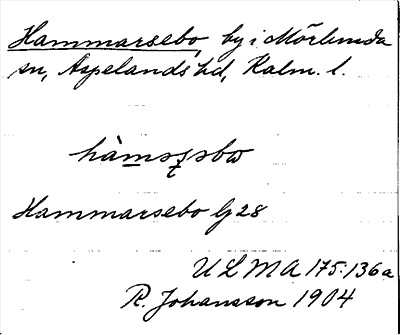 Hammarsebo, by i Mörlunda
sn, Aspelands hd, Kalm. l.
Hammarsebo Gj 28
ULMA 175:136a
R. Johansson 1904